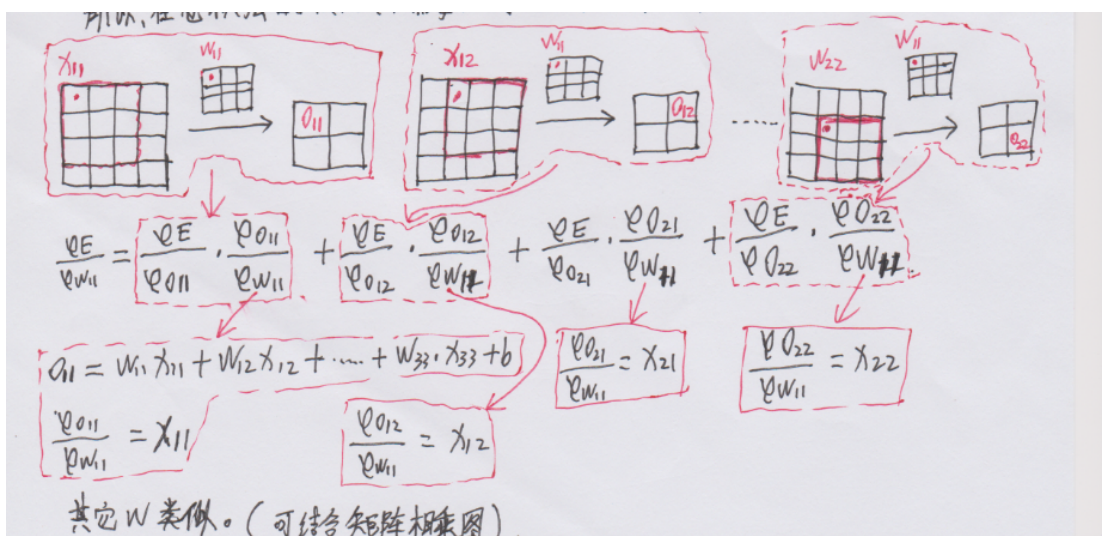 所以,在
X11 W11 O11
X12 W11 O12
......
W22 W11 O22
∂E/∂W11 = ∂E/∂O11 · ∂O11/∂W11 + ∂E/∂O12 · ∂O12/∂W11 + ∂E/∂O21 · ∂O21/∂W11 + ∂E/∂O22 · ∂O22/∂W11
O11 = W11 X11 + W12 X12 + .... + W33 · X33 + b
∂O21/∂W11 = X21
∂O22/∂W11 = X22
∂O11/∂W11 = X11
∂O12/∂W11 = X12
其它W类似。(可结合矩阵相乘图)